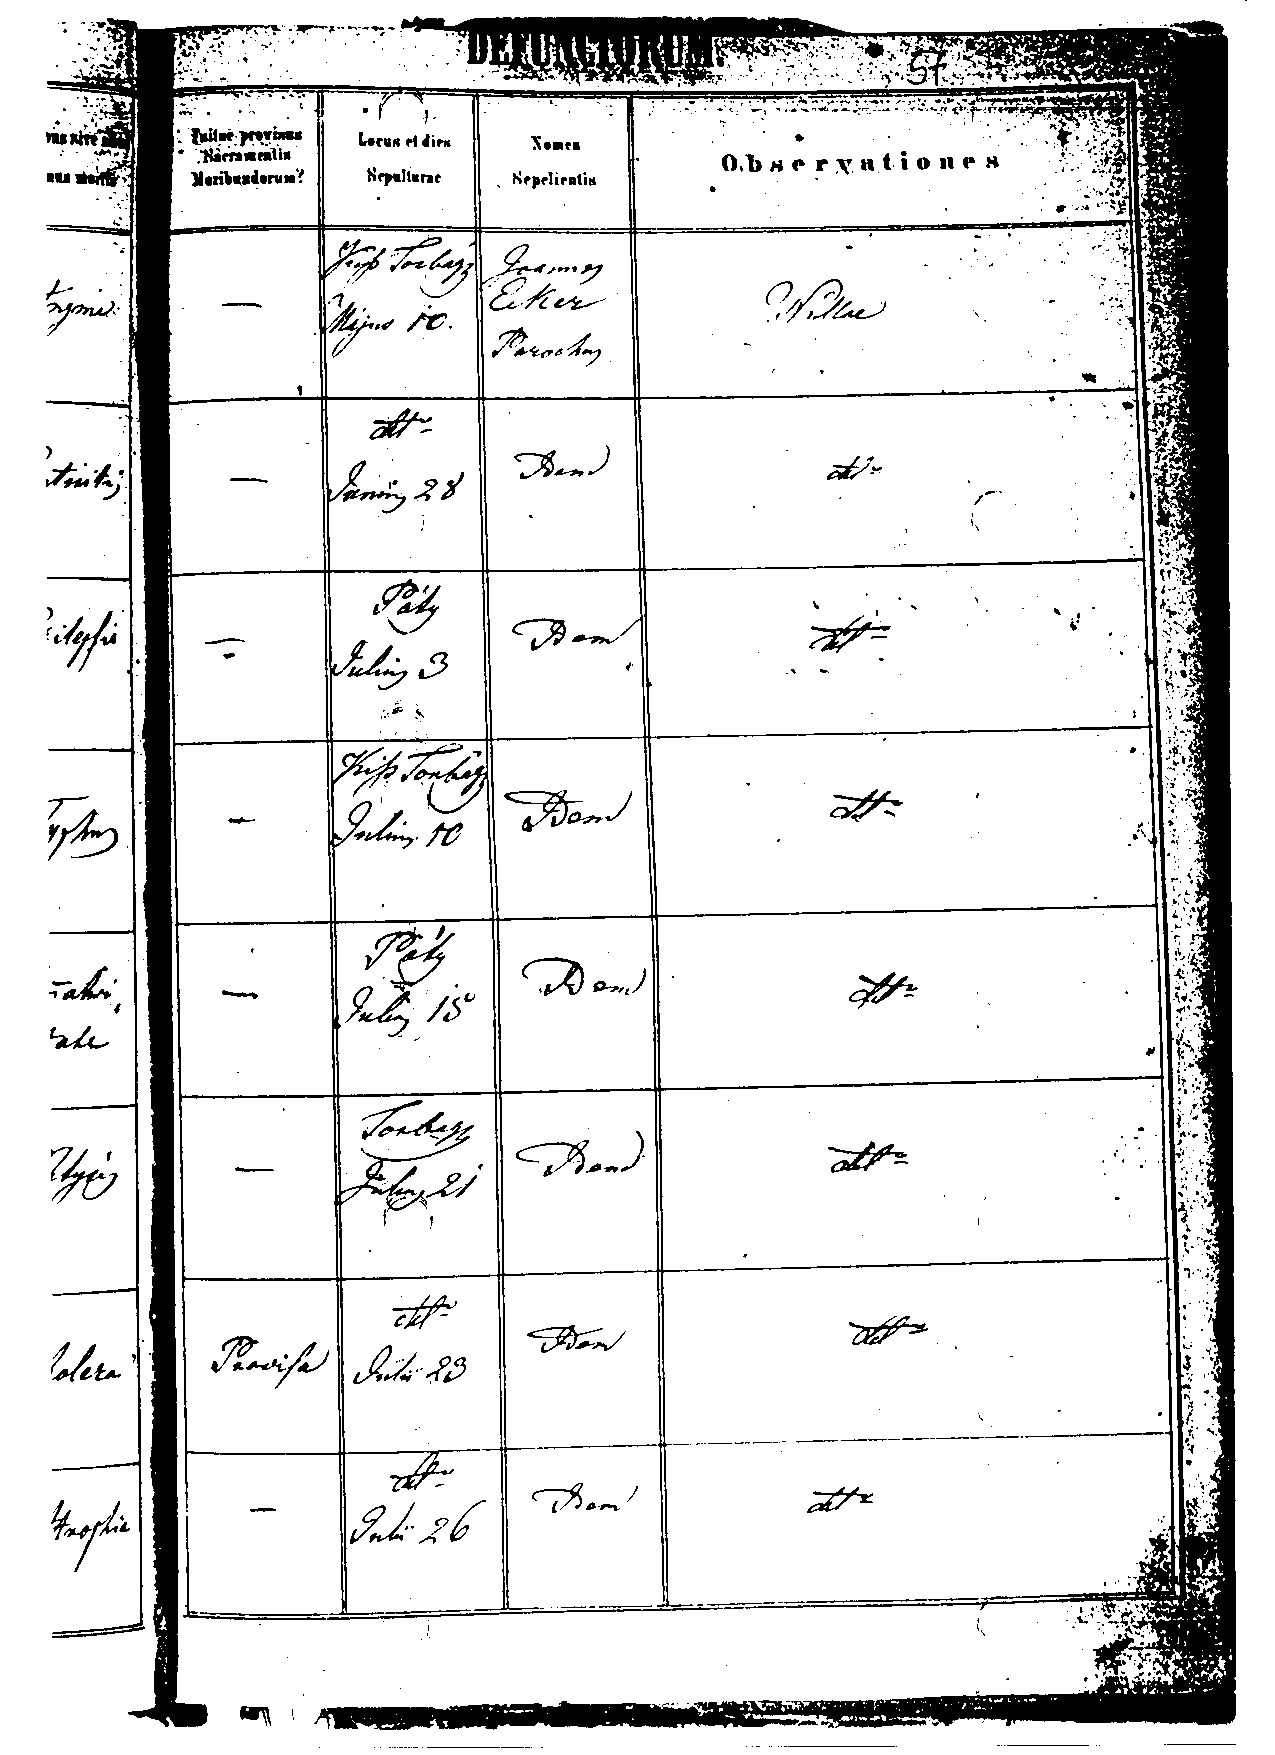 DEFUNCTORUM.
57
Fuitne provisus
Sacramentis
Moribundorum?
Locus et dies
Sepulturae
Nomen
Sepelientis
Observationes
—
Kiss Torbágy
Majus 10.
Joannes
Eiker
Parochus
Nullae
—
dtto
Junius 28
Idem
dtto
—
Páty
Julius 3
Idem
dtto
Typhus
—
Kiss Torbágy
Julius 10
Idem
dtto
—
Páty
Julius 15
Idem
dtto
—
Torbágy
Julius 21
Idem
dtto
olera
Provisa
dtto
Julii 23
Idem
dtto
trophia
—
dtto
Julii 26
Idem
dtto